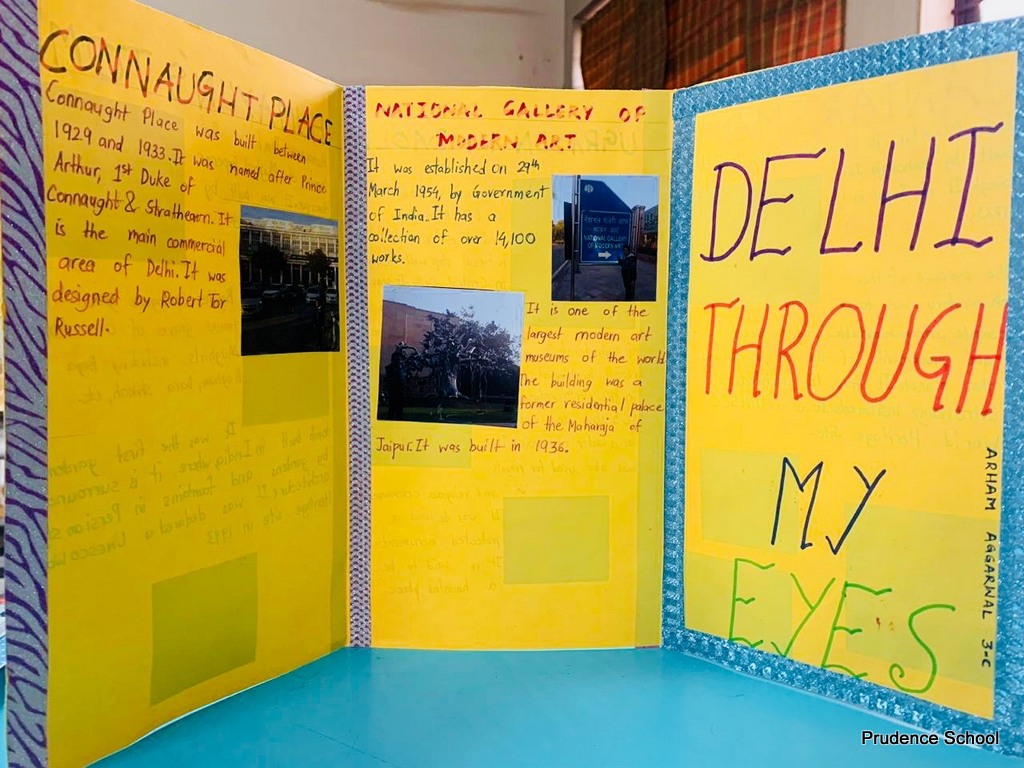 CONNAUGHT PLACE
Connaught Place was built between
1929 and 1933. It was named after Prince
Arthur, 1st Duke of
Connaught & Strathearn. It
is the main commercial
area of Delhi. It was
designed by Robert Tor
Russell.
NATIONAL GALLERY OF
MODERN ART
It was established on 29th
March 1954, by Government
of India. It has a
collection of over 14,100
works.
NATIONAL GALLERY
OF MODERN ART
It is one of the
largest modern art
museums of the world
The building was a
former residential palace
of the Maharaja of
Jaipur. It was built in 1936.
DELHI
THROUGH
MY
EYES
ARHAM AGGARWAL 3-C
Prudence School